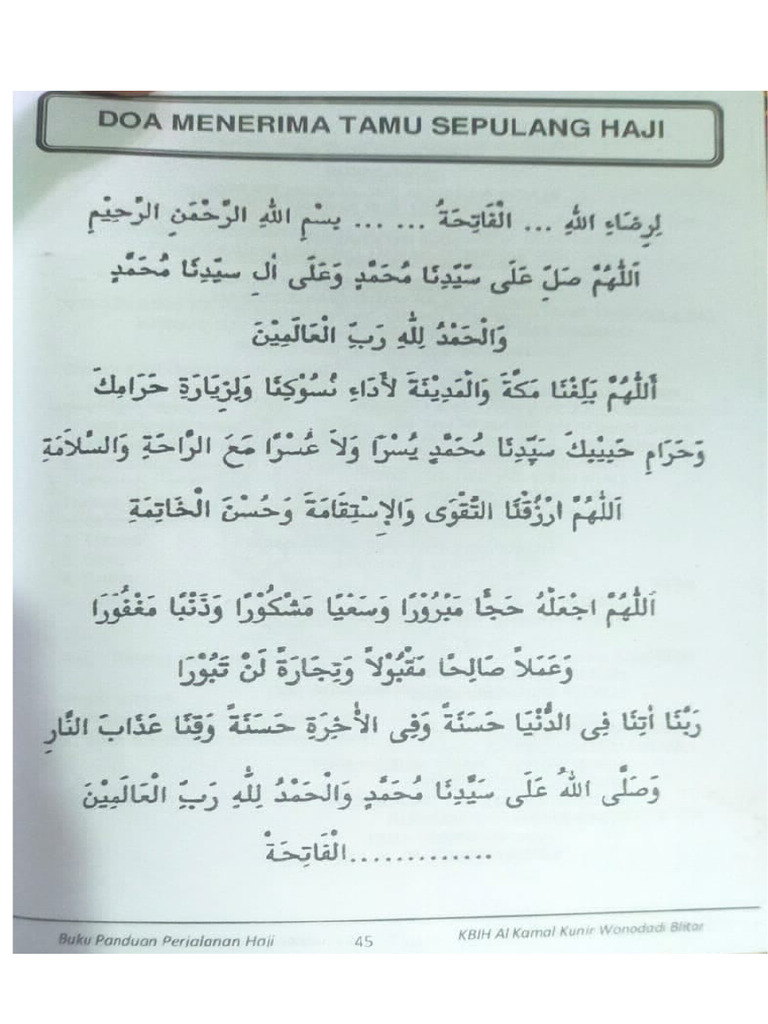 DOA MENERIMA TAMU SEPULANG HAJI
لِرِضَاءِ اللهِ ... الْفَاتِحَةُ ... ... بِسْمِ اللهِ الرَّحْمَنِ الرَّحِيْمِ
اَللّٰهُمَّ صَلِّ عَلَى سَيِّدِنَا مُحَمَّدٍ وَعَلَى اٰلِ سَيِّدِنَا مُحَمَّدٍ
وَالْحَمْدُ لِلّٰهِ رَبِّ الْعَالَمِيْنَ
أَللّٰهُمَّ بَلِغْنَا مَكَّةَ وَالْمَدِيْنَةَ لأَدَاءِ نُسُوْكِنَا وَلِزِيَارَةِ حَرَامِكَ
وَحَرَامِ حَبِيْبِكَ سَيِّدِنَا مُحَمَّدٍ يُسْرًا وَلاَ عُسْرًا مَعَ الرَّاحَةِ وَالسَّلاَمَةِ
اَللّٰهُمَّ ارْزُقْنَا التَّقْوَى وَالإِسْتِقَامَةَ وَحُسْنَ الْخَاتِمَةِ
اَللّٰهُمَّ اجْعَلْهُ حَجًّا مَبْرُوْرًا وَسَعْيًا مَشْكُوْرًا وَذَنْبًا مَغْفُوْرَا
وَعَمَلاً صَالِحًا مَقْبُوْلاً وَتِجَارَةً لَنْ تَبُوْرَا
رَبَّنَا اٰتِنَا فِى الدُّنْيَا حَسَنَةً وَفِى الأٰخِرَةِ حَسَنَةً وَقِنَا عَذَابَ النَّارِ
وَصَلَّى اللهُ عَلَى سَيِّدِنَا مُحَمَّدٍ وَالْحَمْدُ لِلّٰهِ رَبِّ الْعَالَمِيْنَ
.............الْفَاتِحَةْ
Buku Panduan Perjalanan Haji 45 KBIH Al Kamal Kunir Wonodadi Blitar